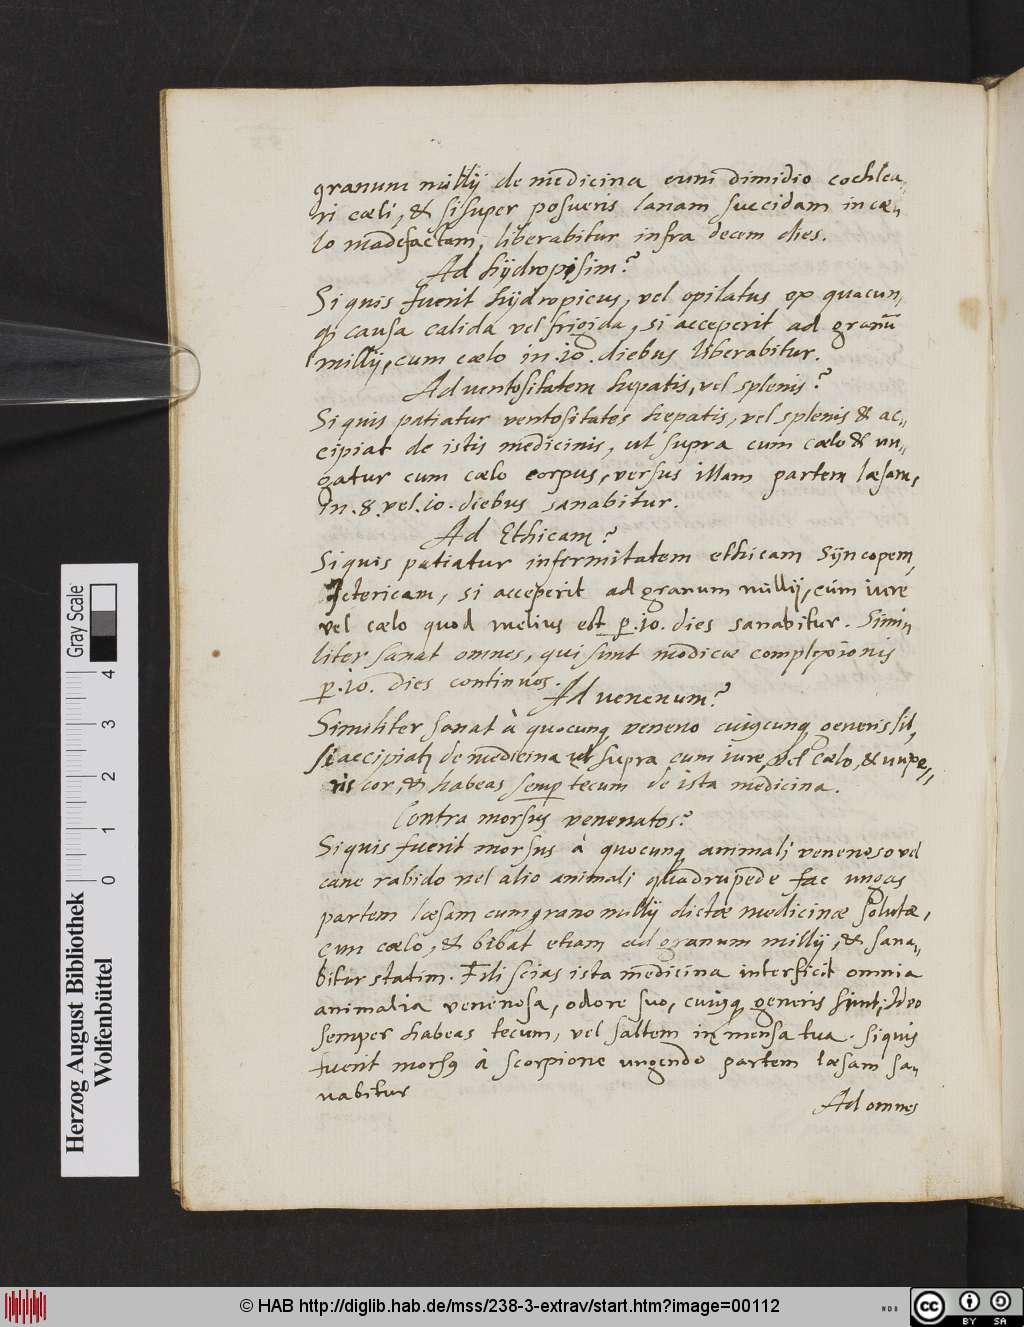 granum millij de medicina cum dimidio cochlea-
ri cæli, & si super posueris lanam succidam in cæ-
lo madefactam, liberabitur infra decem dies.
Ad hijdropisim?
Si quis fuerit hijdropicus, vel opilatus ex quacun-
q; causa calida vel frigida, si acceperit ad granũ
millij, cum cælo in .10. diebus liberabitur.
Ad ventositatem hepatis, vel splenis?
Si quis patiatur ventositates hepatis, vel splenis & ac-
cipiat de istis medicinis, ut supra cum cælo & un-
gatur cum cælo corpus, versus illam partem læsam,
in .8. vel .10. diebus sanabitur.
Ad Ethicam?
Si quis patiatur infirmitatem ethicam Sijncopem,
Ictericam, si acceperit ad granum millij, cum iure
vel cælo quod melius est p .10. dies sanabitur. Simi-
liter sanat omnes, qui sunt modicæ complexionis
p .10. dies continuos.
Ad venenum?
Similiter sanat à quocunq; veneno cuiuscunq; generis sit,
si accipiat de medicina ut supra cum iure, vel cælo, & unxe-
ris cor, & habeas semp tecum de ista medicina.
Contra morsus venenatos?
Si quis fuerit morsus à quocunq; animali venenoso vel
cane rabido vel alio animali quadrupede fac ungas
partem læsam cum grano millij dictæ medicinæ solutæ,
cum cælo, & bibat etiam ad granum millij, & sana-
bitur statim. Fili scias ista medicina interficit omnia
animalia venenosa, odore suo, cuiusq; generis sint, Ideo
semper habeas tecum, vel saltem in mensa tua. Si quis
fuerit morsq à scorpione ungendo partem læsam sa-
nabitur
Ad omnes
Herzog August Bibliothek
Wolfenbüttel
0 1 2 3 4
Gray Scale
© HAB http://diglib.hab.de/mss/238-3-extrav/start.htm?image=00112
NDB
cc BY SA